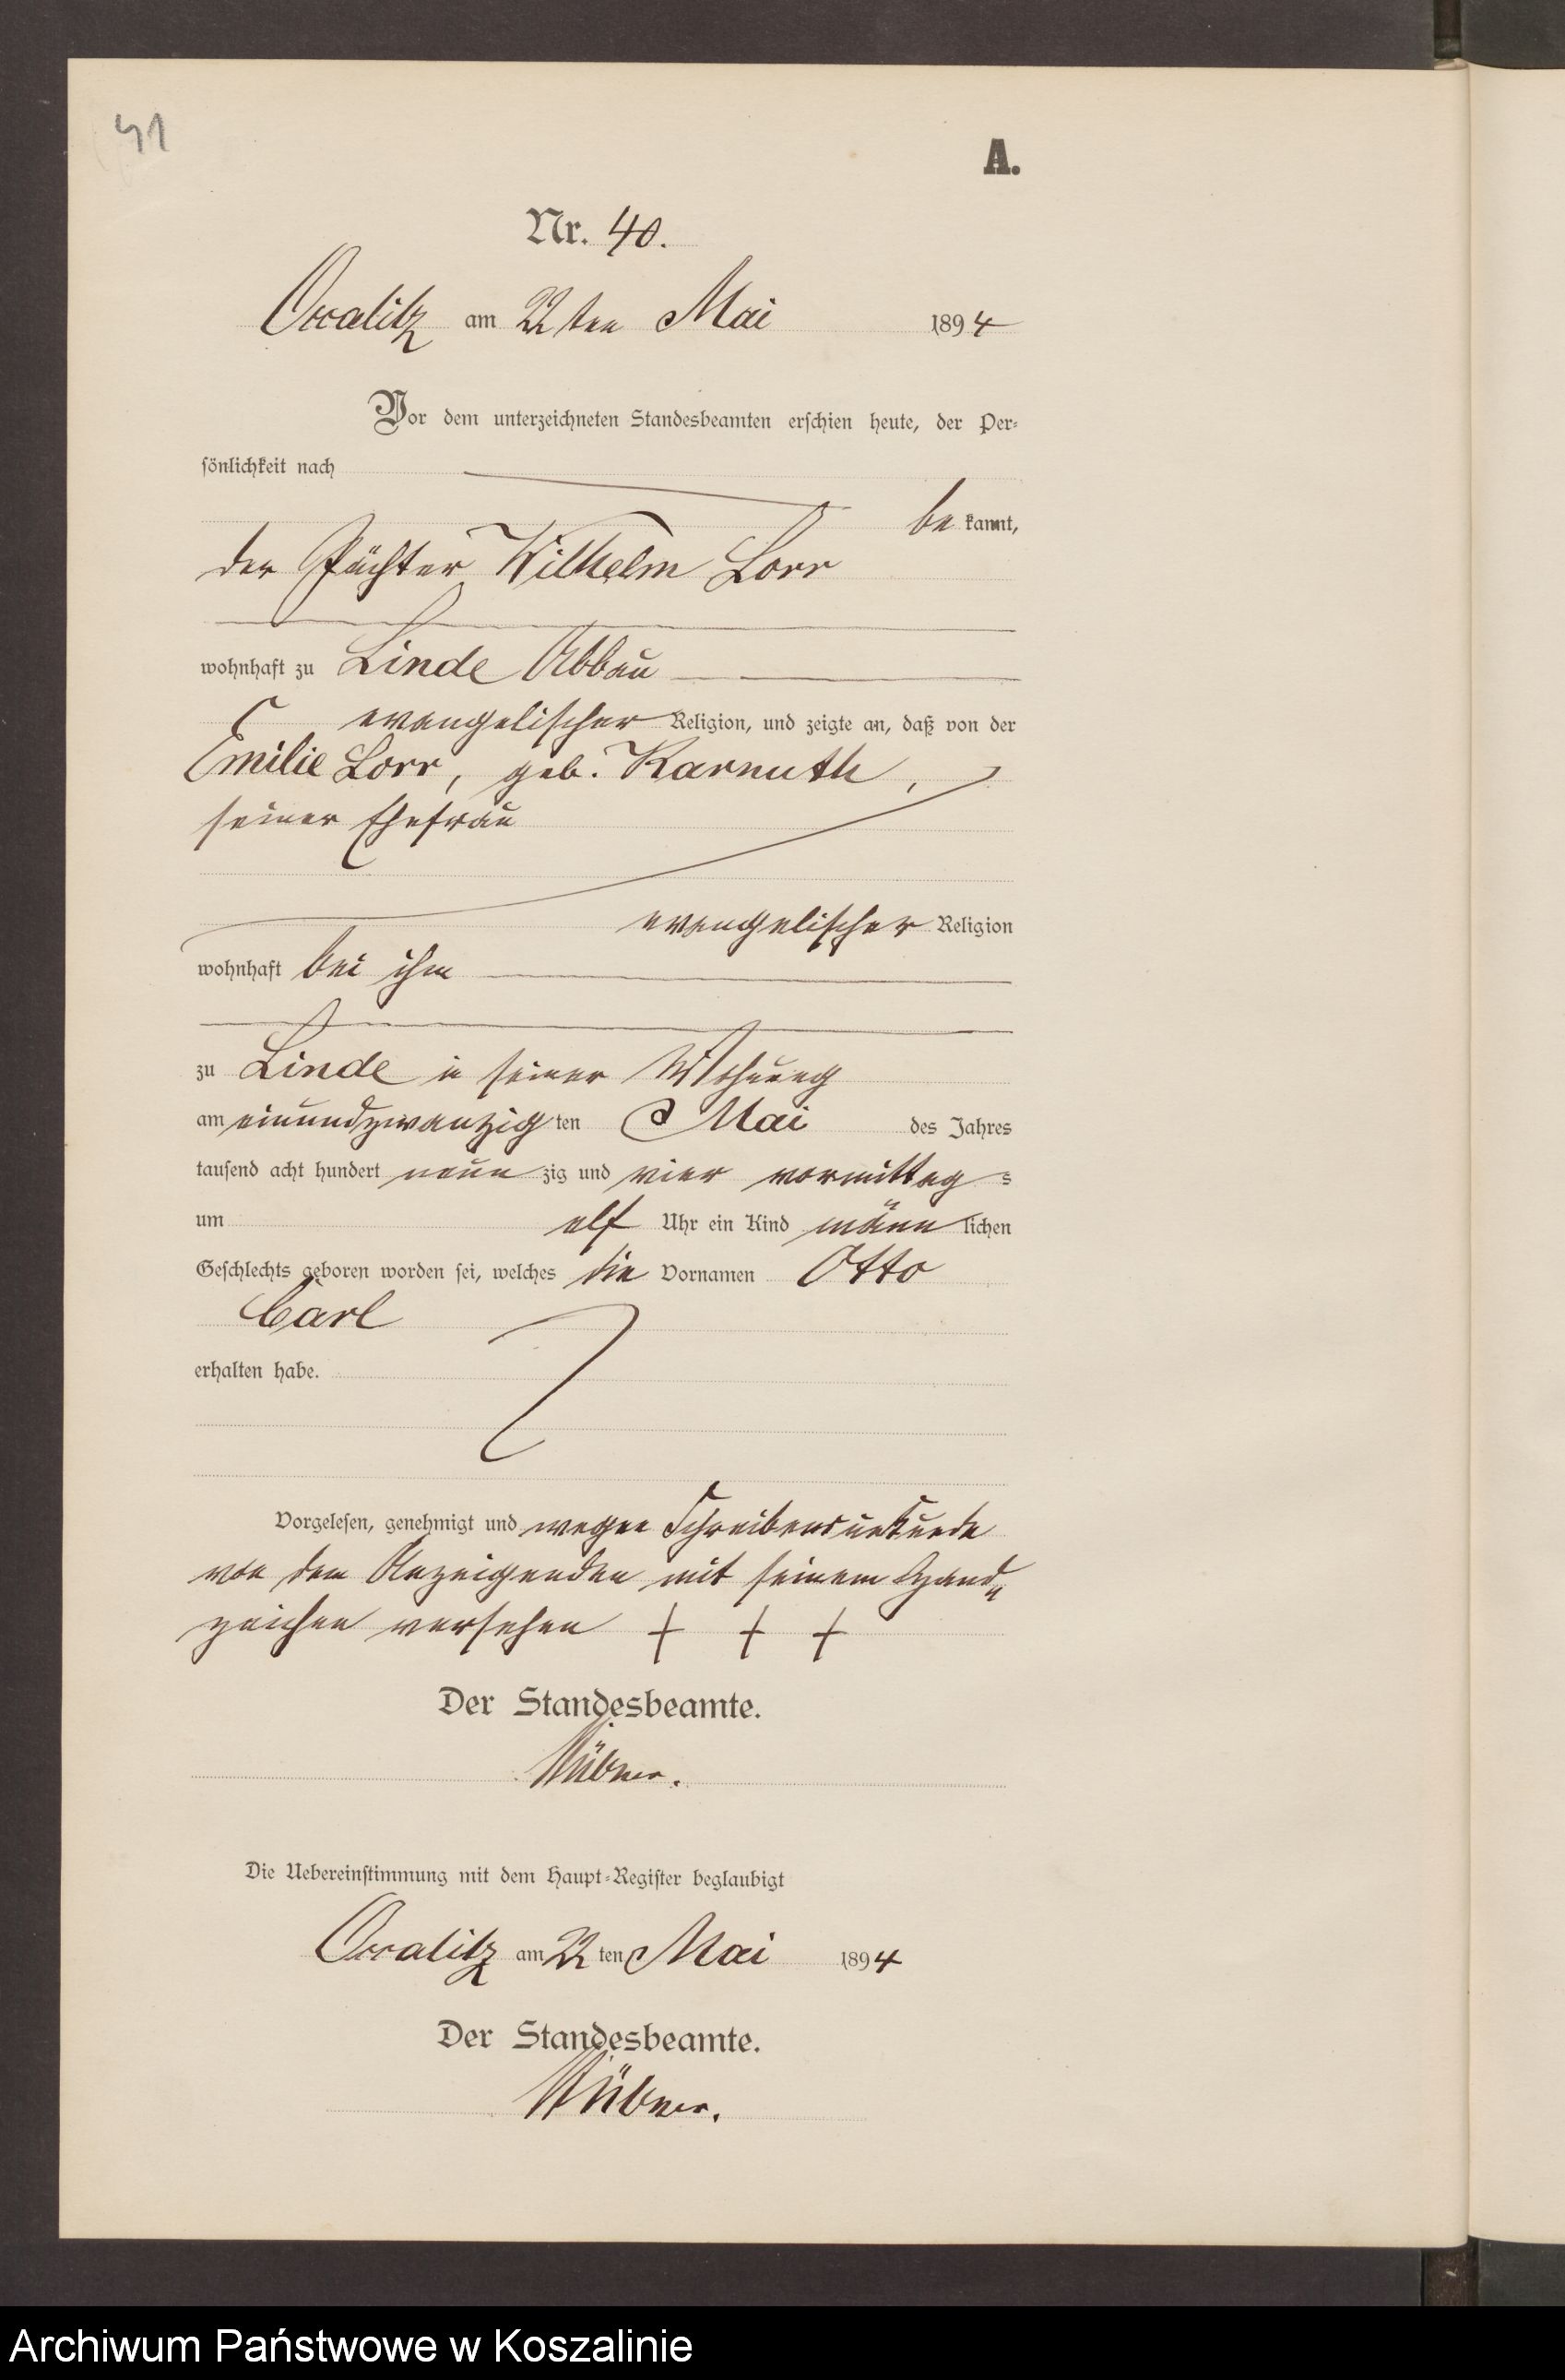 41
A.
Nr. 40.
Occalitz am 22ten Mai 1894
Vor dem unterzeichneten Standesbeamten erschien heute, der Per-
sönlichkeit nach
be kannt,
der Pächter Wilhelm Lorr
wohnhaft zu Linde Abbau
evangelischer Religion, und zeigte an, daß von der
Emilie Lorr, geb. Karnuth,
seiner Ehefrau
evangelischer Religion
wohnhaft bei ihm
zu Linde in seiner Wohnung
am einundzwanzig ten Mai des Jahres
tausend acht hundert neun zig und vier vormittag s
um elf Uhr ein Kind männ lichen
Geschlechts geboren worden sei, welches die Vornamen Otto
Carl
erhalten habe.
Vorgelesen, genehmigt und wegen Schreibensunkunde
von dem Anzeigenden mit seinem Hand-
zeichen versehen + + +
Der Standesbeamte.
Die Uebereinstimmung mit dem Haupt-Register beglaubigt
Occalitz am 22 ten Mai 1894
Der Standesbeamte.
Archiwum Państwowe w Koszalinie